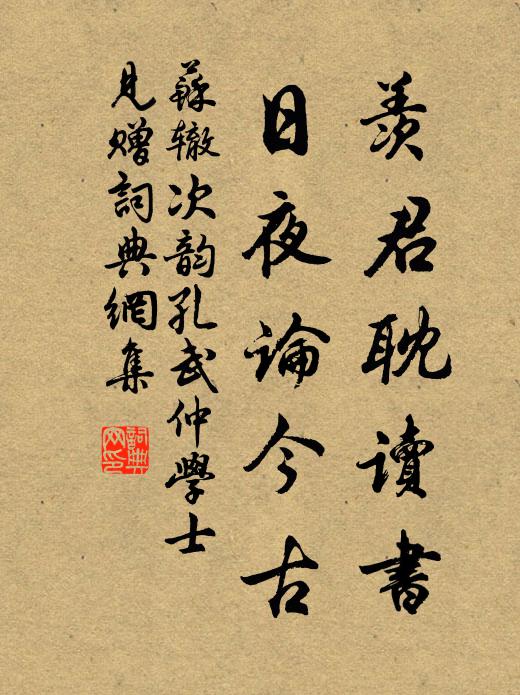 羨君耽讀書
日夜論今古
蘇辙次韵孔武仲學士
見赠詞典網集
詞典網印